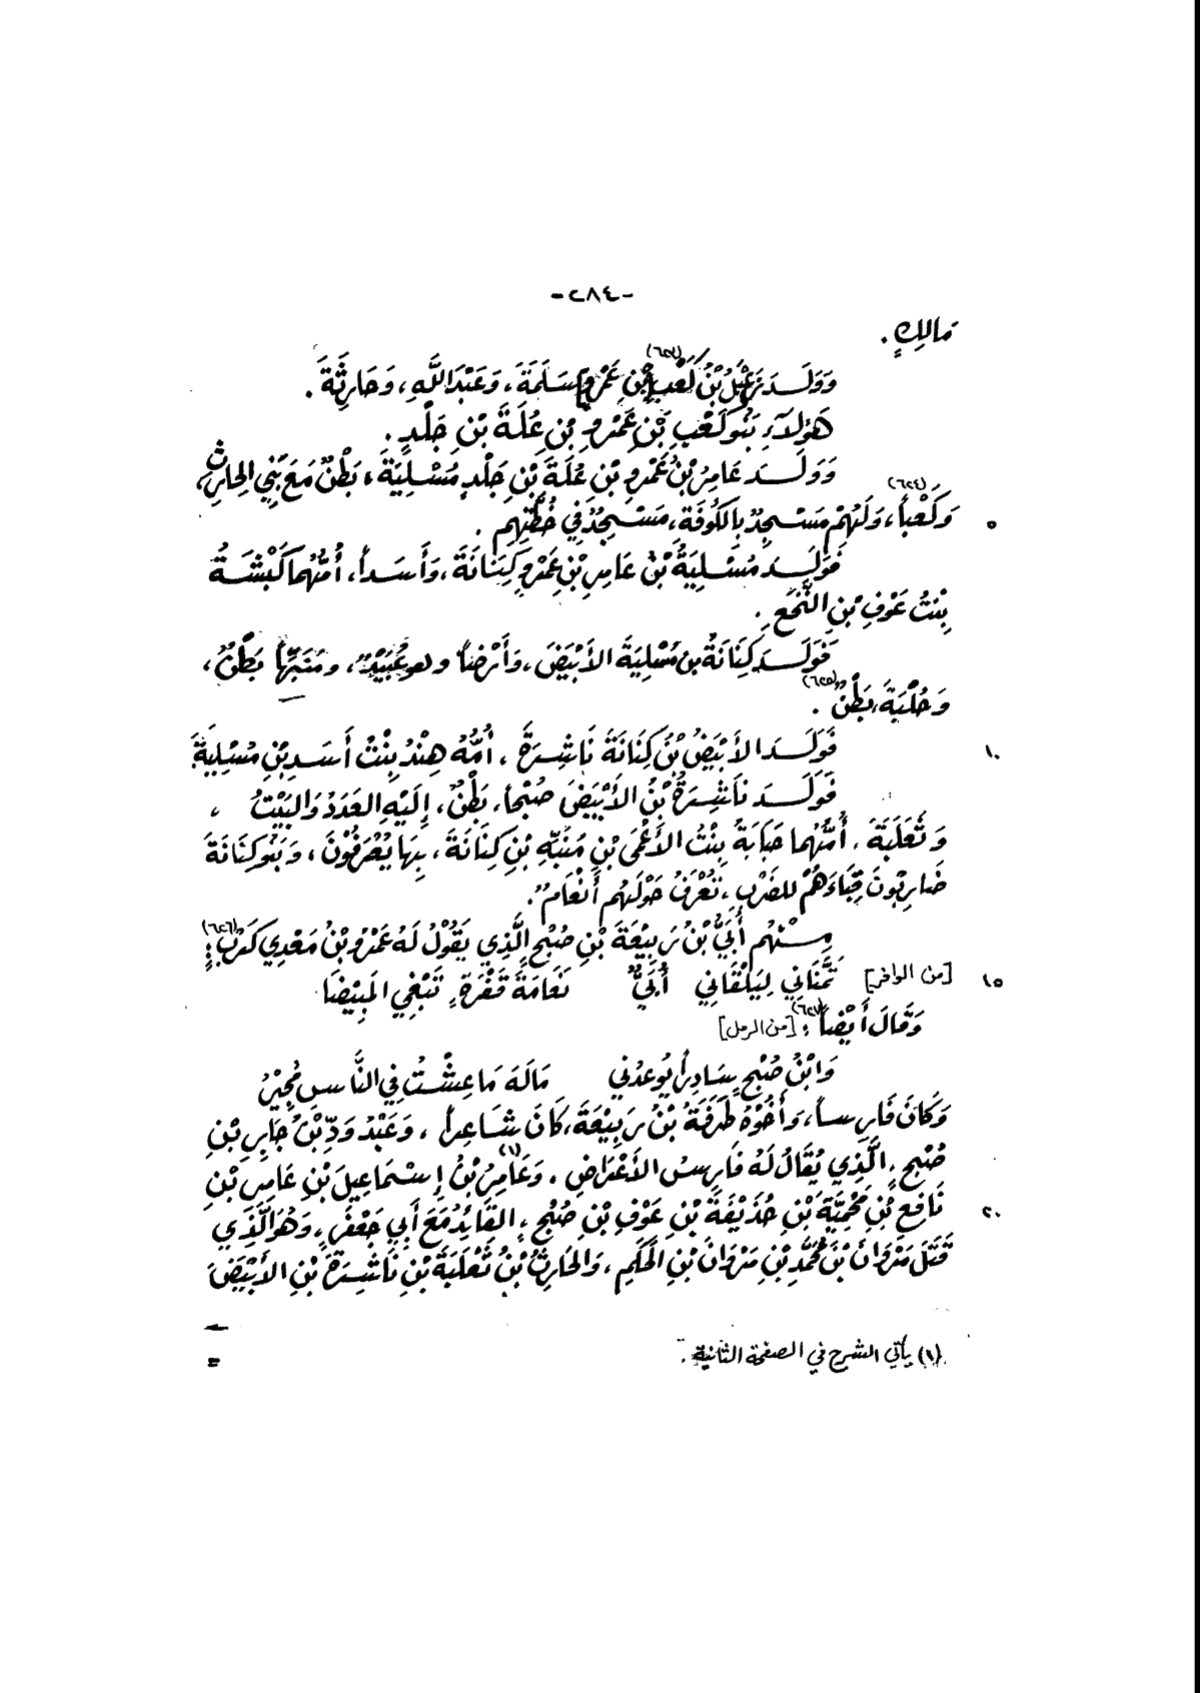 -٢٨٤-
مَالِكٍ .
وَوَلَـدَ زَعْبَلُ بْنُ كَعْبِ (٦٢٣) [بْنِ عَمْرٍو] سَلَمَةَ ، وَعَبْدَ اللَّهِ ، وَحَارِثَةَ .
هَؤلاَءِ بَنُو كَعْبِ بْنِ عَمْرِو بْنِ عُلَةَ بْنِ جَلْدٍ .
وَوَلَـدَ عَامِرُ بْنُ عَمْرِو بْنِ عُلَةَ بْنِ جَلْدٍ مُسْلِيَةَ ، بَطْنٌ مَعَ بَنِي الحَارِثِ ،
وَكَعْباً (٦٢٤) ، وَلَهُمْ مَسْجِدٌ بِالكُوفَةِ ، مَسْجِدٌ فِي خُطَّتِهِم . ٥
فَوَلَـدَ مُسْلِيَةُ بْنُ عَامِرِ بْنِ عَمْرٍو كِنَانَةَ ، وَأَسَداً ، أُمُّهُمَا كَبْشَـةُ
بِنْتُ عَوْفِ بْنِ النَّخَعِ .
فَوَلَـدَ كِنَانَةُ بن مُسْلِيَةَ الأَبْيَضَ ، وَأَرْضاً وهو عُبَيْدٌ ، ومُنَبِّهاً بَطْنٌ ،
وَحُلْبَةَ ، بَطْنٌ (٦٢٥) .
فَوَلَـدَ الأَبْيَضُ بْنُ كِنَانَةَ نَاشِرَةَ ، أُمُّهُ هِنْدُ بِنْتُ أَسَدِ بْنِ مُسْلِيَةَ . ١٠
فَوَلَـدَ نَاشِرَةُ بْنُ الأَبْيَضَ صُبْحاً ، بَطْنٌ ، إِلَيْهِ العَدَدُ وَالبَيْتُ ،
وَثَعْلَبَةَ ، أُمُّهُما حَبَابَةُ بِنْتُ الأَعْمَى بْنِ مُنَبِّهِ بْنِ كِنَانَةَ ، بِهَا يُعْرَفُوْنَ ، وَبَنُو كِنَانَةَ
ضَارِبُونَ قِبَاءَهُمْ للضَرْبِ ، تُعْرَفُ حَوْلَهُم أَنْعَامٌ .
مِنْهُم أُبَيُّ بْنُ رَبِيْعَةَ بْنِ صُبْحٍ الَّذِي يَقُوْلُ لَهُ عَمْرُو بْنُ مَعْدِي كَرِبَ (٦٢٦) :
[من الوافر] تَمَنَّانِي لِيَلْقَانِي أُبَيٌّ نَعَامَةَ قَفْرَةٍ تَبْغِي المَبِيْضَا ١٥
وَقَالَ أَيْضاً (٦٢٧) : [من الرمل]
وَابْنُ صُبْحٍ سَادِراً يُوعدُني مَالَهُ مَا عِشْتُ فِي النَّاسِ مُجِيْرُ
وَكَانَ فَارِساً ، وَأَخُوْهُ طَرَفَةُ بْنُ رَبِيْعَةَ ، كَانَ شَاعِراً ، وَعَبْدُ وَدِّ بْنُ جَابِرِ بْنِ
صُبْحٍ ، الَّذِي يُقَالُ لَهُ فَارِسُ الأَعْرَاضِ ، وَعَامِرُ (١) بْنُ إِسْمَاعِيلَ بْنِ عَامِرِ بْنِ
نَافِعِ بْنِ مَحْمِيَّةَ بْنِ حُذَيْفَةَ بْنِ عَوْفِ بْنِ صُبْحٍ ، القَائِدُ مَعَ أَبِي جَعْفَرٍ ، وَهُوَ الَّذِي ٢٠
قَتَلَ مَرْوَانَ بْنَ مُحَمَّدِ بْنِ مَرْوَانَ بْنِ الحَكَمِ ، وَالحَارِثُ بْنُ ثَعْلَبَةَ بْنِ نَاشِرَةَ بْنِ الأَبْيَضَ
(١) يأتي الشرح في الصفحة الثانية .
=